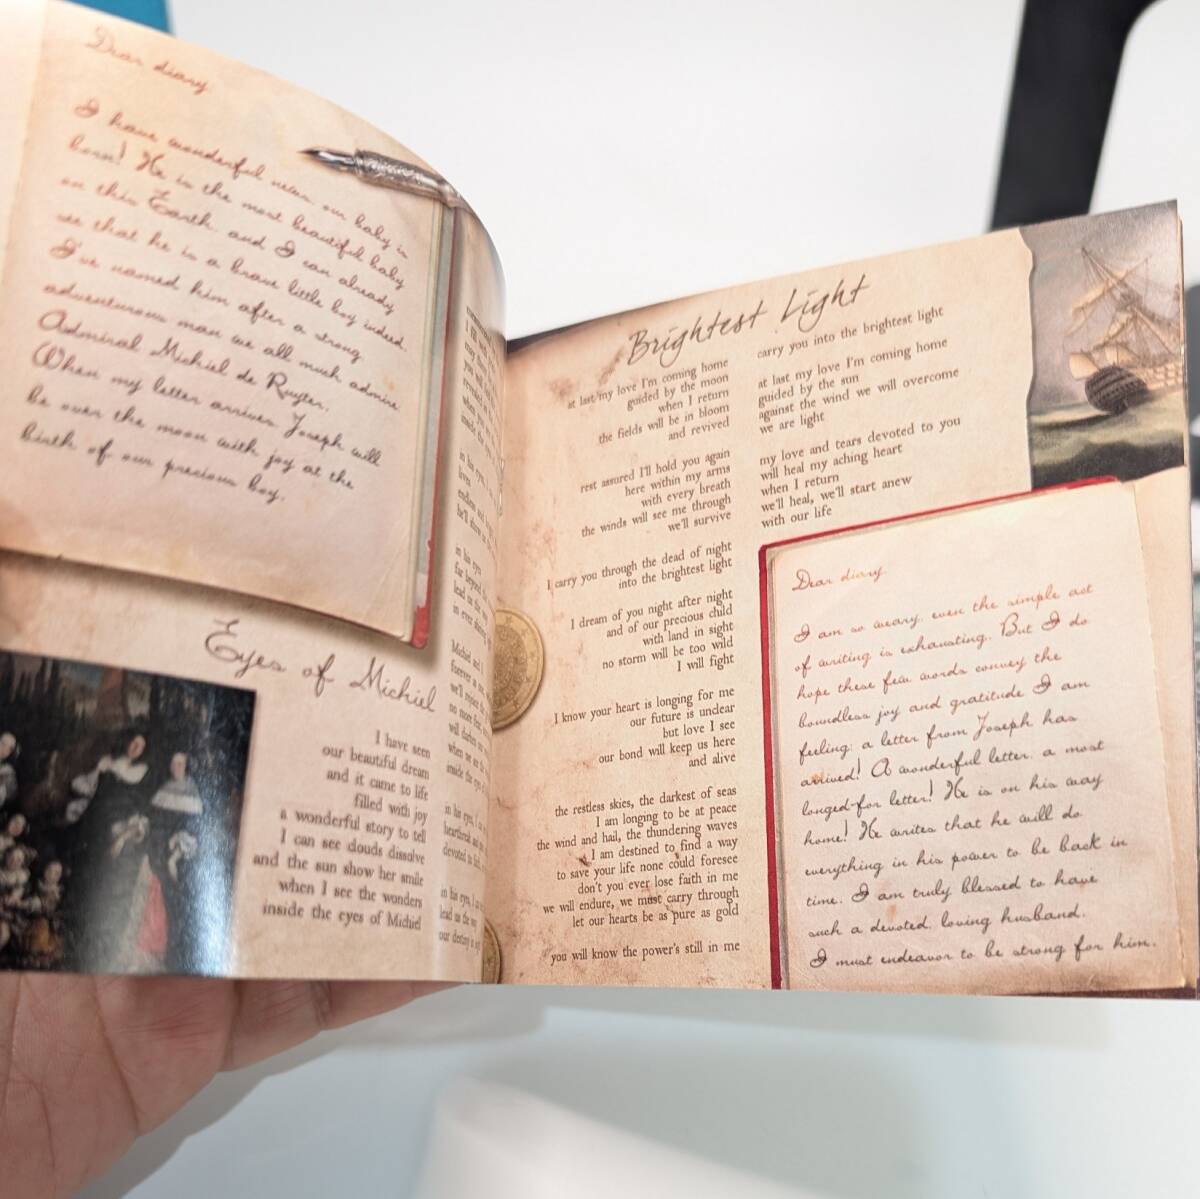 Dear diary,
I have wonderful news, our baby is
born! He is the most beautiful baby
on this Earth, and I can already
see that he is a brave little boy indeed.
I've named him after a strong
adventurous man we all much admire
Admiral Michiel de Ruyter.
When my letter arrives, Joseph will
be over the moon with joy at the
birth of our precious boy.
Eyes of Michiel
I have seen
our beautiful dream
and it came to life
filled with joy
a wonderful story to tell
I can see clouds dissolve
and the sun show her smile
when I see the wonders
inside the eyes of Michiel
in his eyes, I
in his eyes
far beyond
lead us the
Michiel
in his eyes, I
devoted to
in his eyes, I
lead us the way
our destiny is
Brightest Light
at last my love I'm coming home
guided by the moon
when I return
the fields will be in bloom
and revived
rest assured I'll hold you again
here within my arms
with every breath
the winds will see me through
we'll survive
I carry you through the dead of night
into the brightest light
I dream of you night after night
and of our precious child
with land in sight
no storm will be too wild
I will fight
I know your heart is longing for me
our future is unclear
but love I see
our bond will keep us here
and alive
the restless skies, the darkest of seas
I am longing to be at peace
the wind and hail, the thundering waves
I am destined to find a way
to save your life none could foresee
don't you ever lose faith in me
we will endure, we must carry through
let our hearts be as pure as gold
you will know the power's still in me
carry you into the brightest light
at last my love I'm coming home
guided by the sun
against the wind we will overcome
we are light
my love and tears devoted to you
will heal my aching heart
when I return
we'll heal, we'll start anew
with our life
Dear diary,
I am so weary, even the simple act
of writing is exhausting. But I do
hope these few words convey the
boundless joy and gratitude I am
feeling: a letter from Joseph has
arrived! A wonderful letter, a most
longed-for letter! He is on his way
home! He writes that he will do
everything in his power to be back in
time. I am truly blessed to have
such a devoted, loving husband.
I must endeavor to be strong for him.